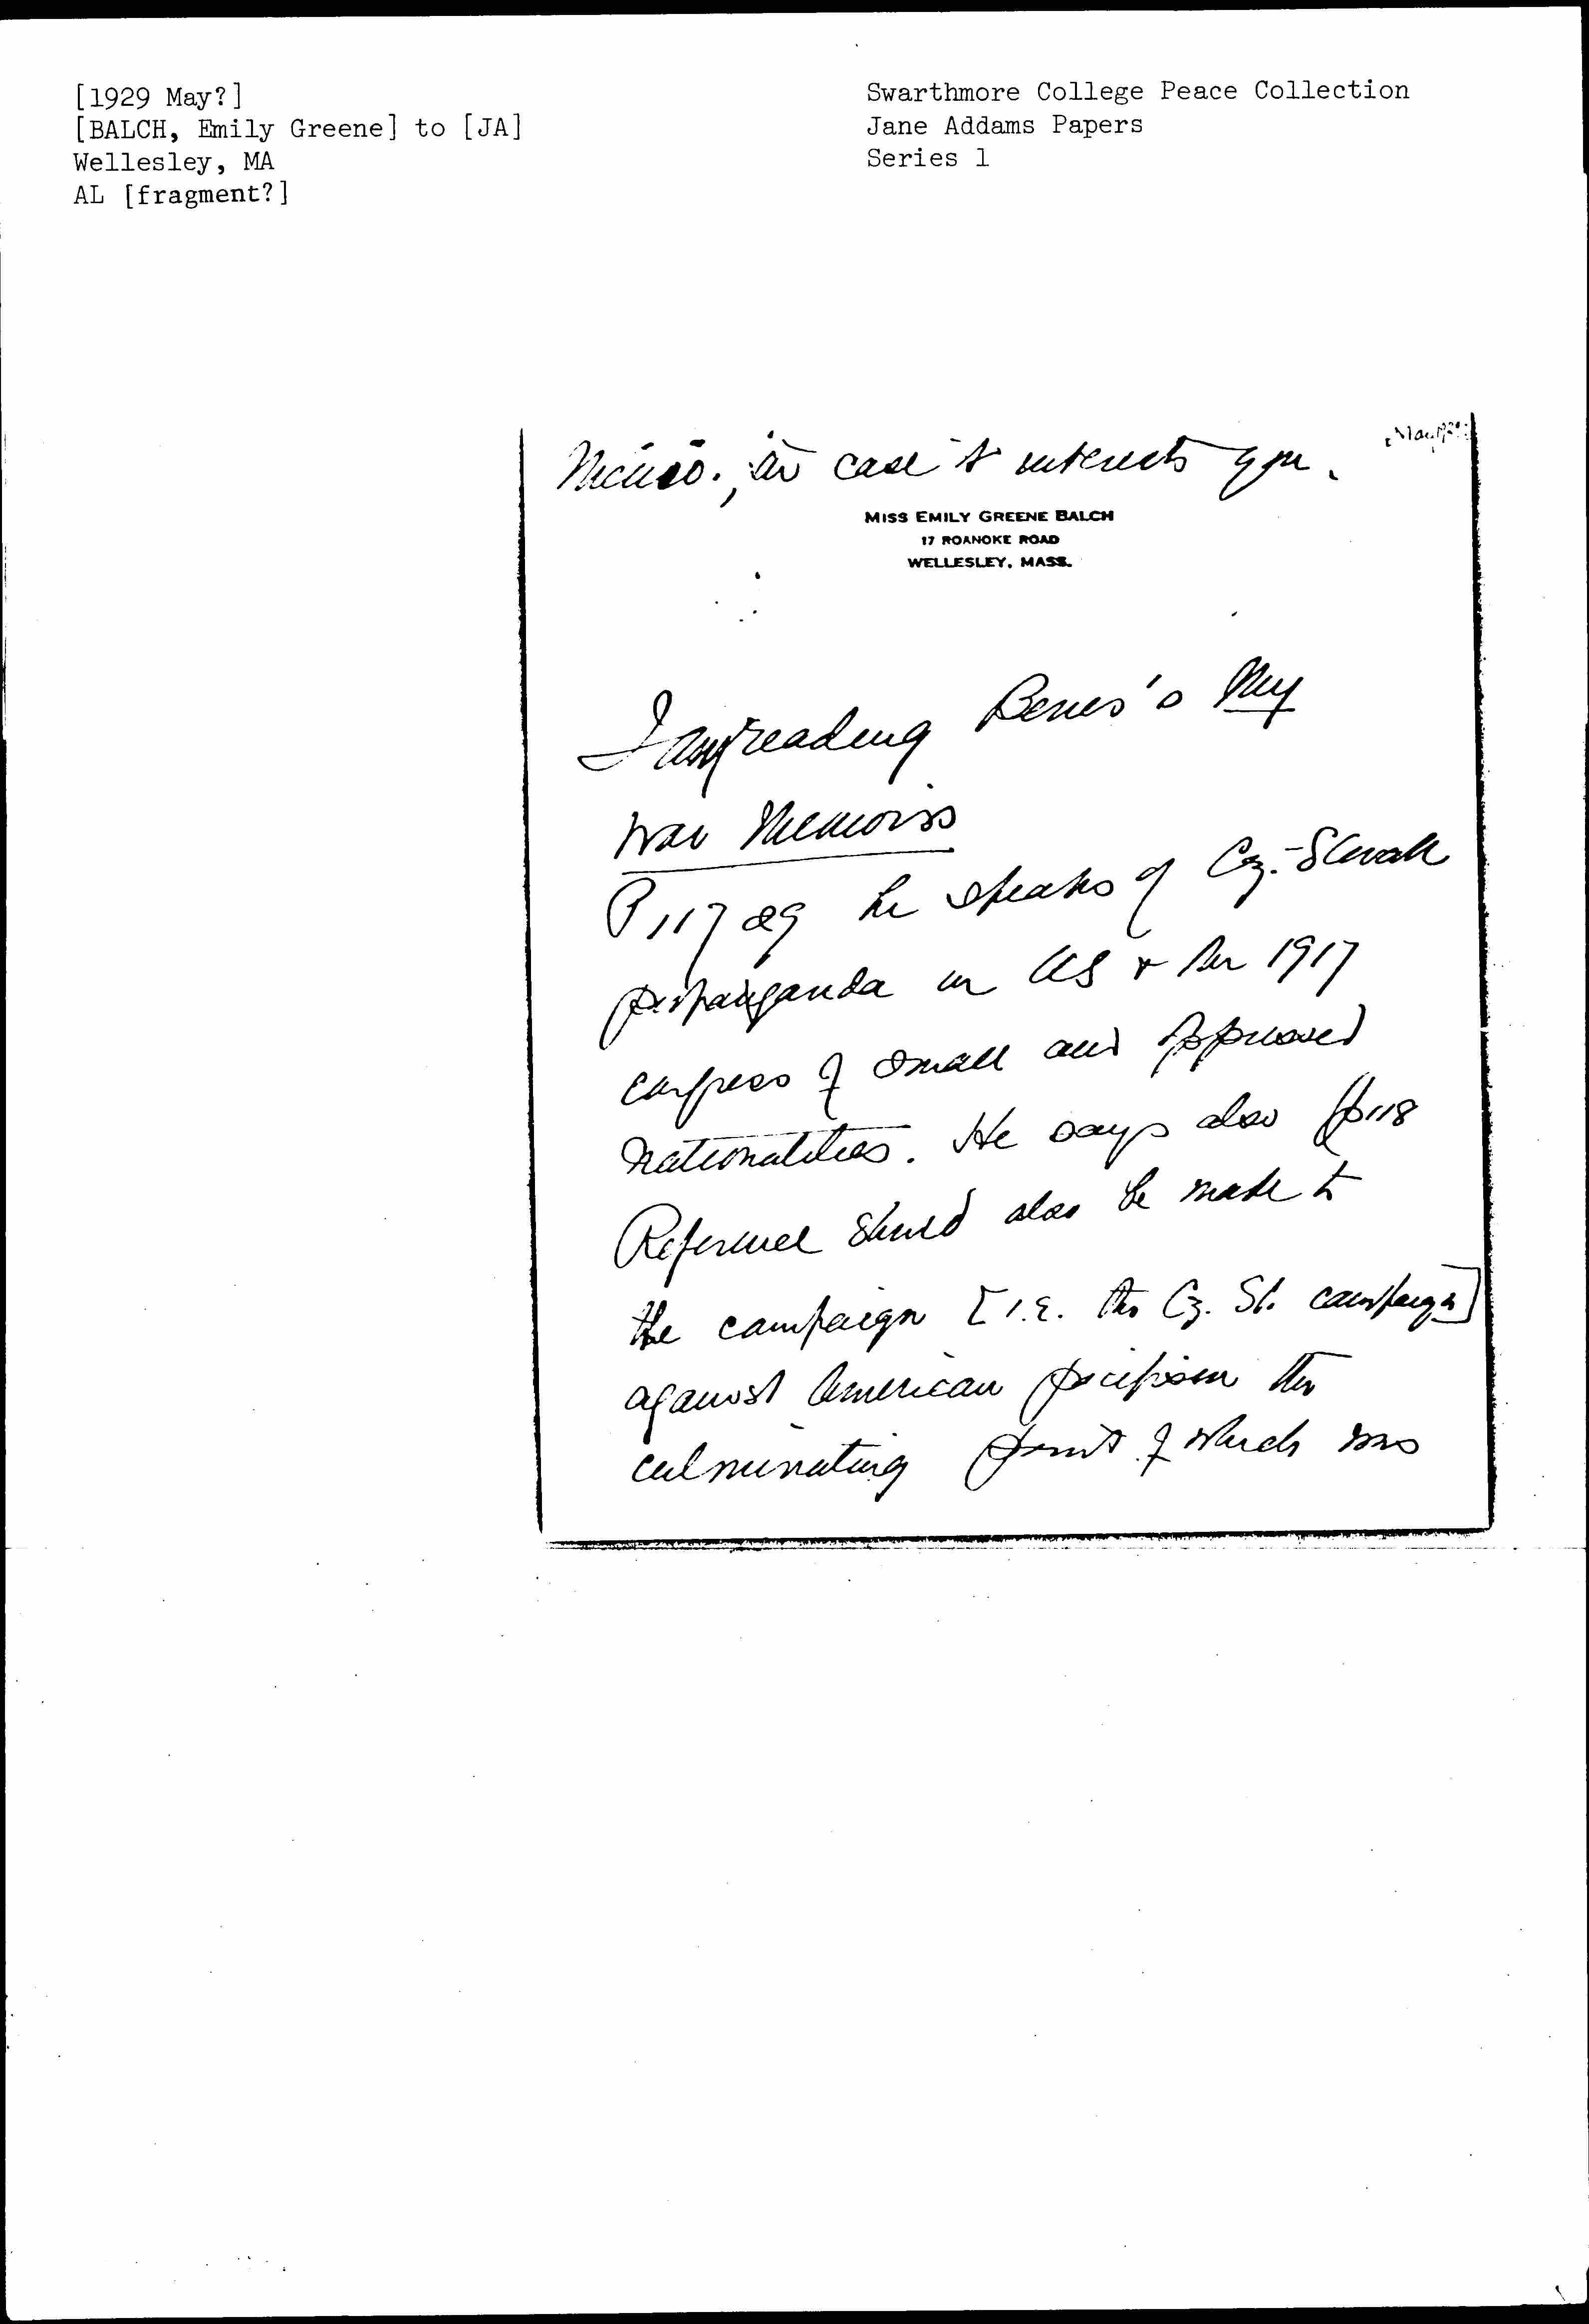 [1929 May?]
[BALCH, Emily Greene] to [JA]
Wellesley, MA
AL [fragment?]
Swarthmore College Peace Collection
Jane Addams Papers
Series 1
Memo., in case it interests you.
MISS EMILY GREENE BALCH
17 ROANOKE ROAD
WELLESLEY, MASS.
I am reading Benes's My
War Memoirs
P 117 he speaks of Cz.-Slovak
propaganda in US & the 1917
congress of small and oppressed
nationalities. He says also p 118
Reference should also be made to
the campaign [i.e. the Cz. Sl. campaign]
against American pacifism the
culminating point of which was